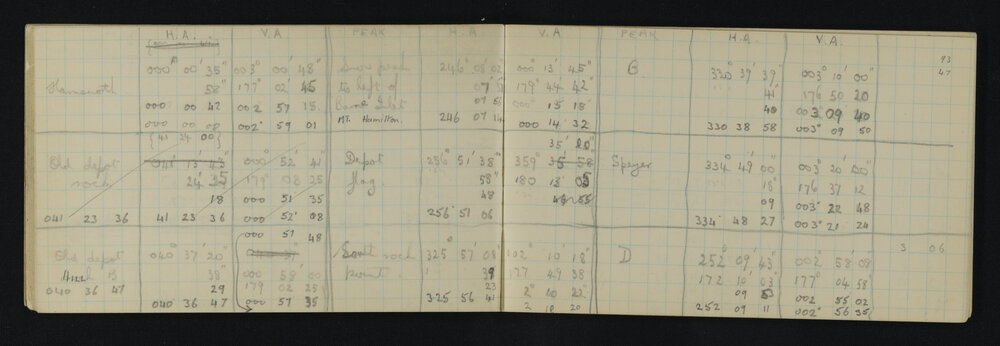 H.A. V.A. PEAK H.A V.A. PEAK H.A. V.A.
93
47
000° 00' 35" 003° 00' 48" 246° 08' 02" 000° 13' 45" G 330° 39' 39" 003° 10' 00"
58" 177° 02' 45 to left of 07 179° 44 42 41 176 50 20
000 00 42 002 57 15 000° 15 18 40 003 09 40
000 00 08 002° 59 01 Mt. Hamilton. 246 07 14 000 14 32 330 38 58 003° 09 50
{41 24 00} 35' 20
Old depot 041° 13' 43" 000° 52' 41 Depot 256° 51' 38" 359° 35' 58 Speyer 334° 49' 00" 003° 20' 00"
rock 24' 35 179° 08 25 flag. 58" 180 13 05 18" 176 37 12
18 000 51 35 48 48 55 09 003° 22 48
041 23 36 41 23 36 000 52' 08 256° 51 06 334° 48 27 003° 21 24
000 51 48
3 06
Old depot 040° 37' 20" rock 325° 57' 08 002 10 18 D 252° 09' 43" 002° 58' 08
38" 000 58 00 point. 39 177 49 38 172 10 03 177° 04 58
040 36 47 29 179 02 25 23 2° 10 22" 09 002 55 02
040 36 47 000 57 35 325 56 41 2 10 20 252 09 11 002° 56 35